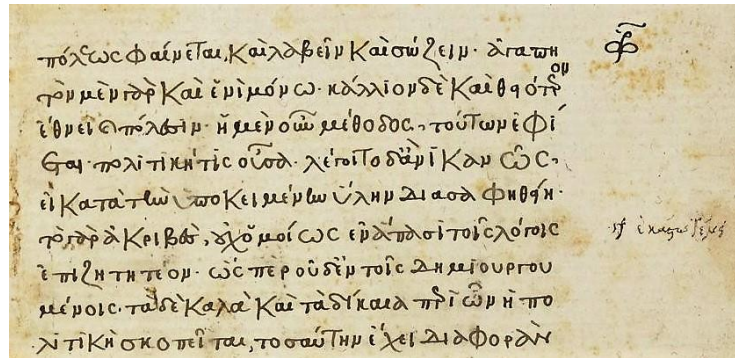 πόλεως φαίνεται, καὶ λαβεῖν καὶ σώζειν· ἀγαπη
τὸν μὲν γὰρ καὶ ἑνὶ μόνω· κάλλιον δὲ καὶ θειότερον
ἔθνει καὶ πόλεσιν· ἡ μὲν οὖν μέθοδος, τούτων ἐφί
εται· πολιτικήτις οὖσα· λέγοιτο δ' ἂν ἱκανῶς,
εἰ κατὰ τὴν ὑποκειμένην ὕλην διασαφηθείη·
τὸ γὰρ ἀκριβὲς, οὐχ ὁμοίως ἐν ἅπασι τοῖς λόγοις
ἐπιζητητέον· ὥς περ οὐδ' ἐν τοῖς δημιουργου
μένοις· τὰ δὲ καλὰ καὶ τὰ δίκαια περὶ ὧν ἡ πο
λιτικὴ σκοπεῖται, τοσαύτην ἔχει διαφορὰν